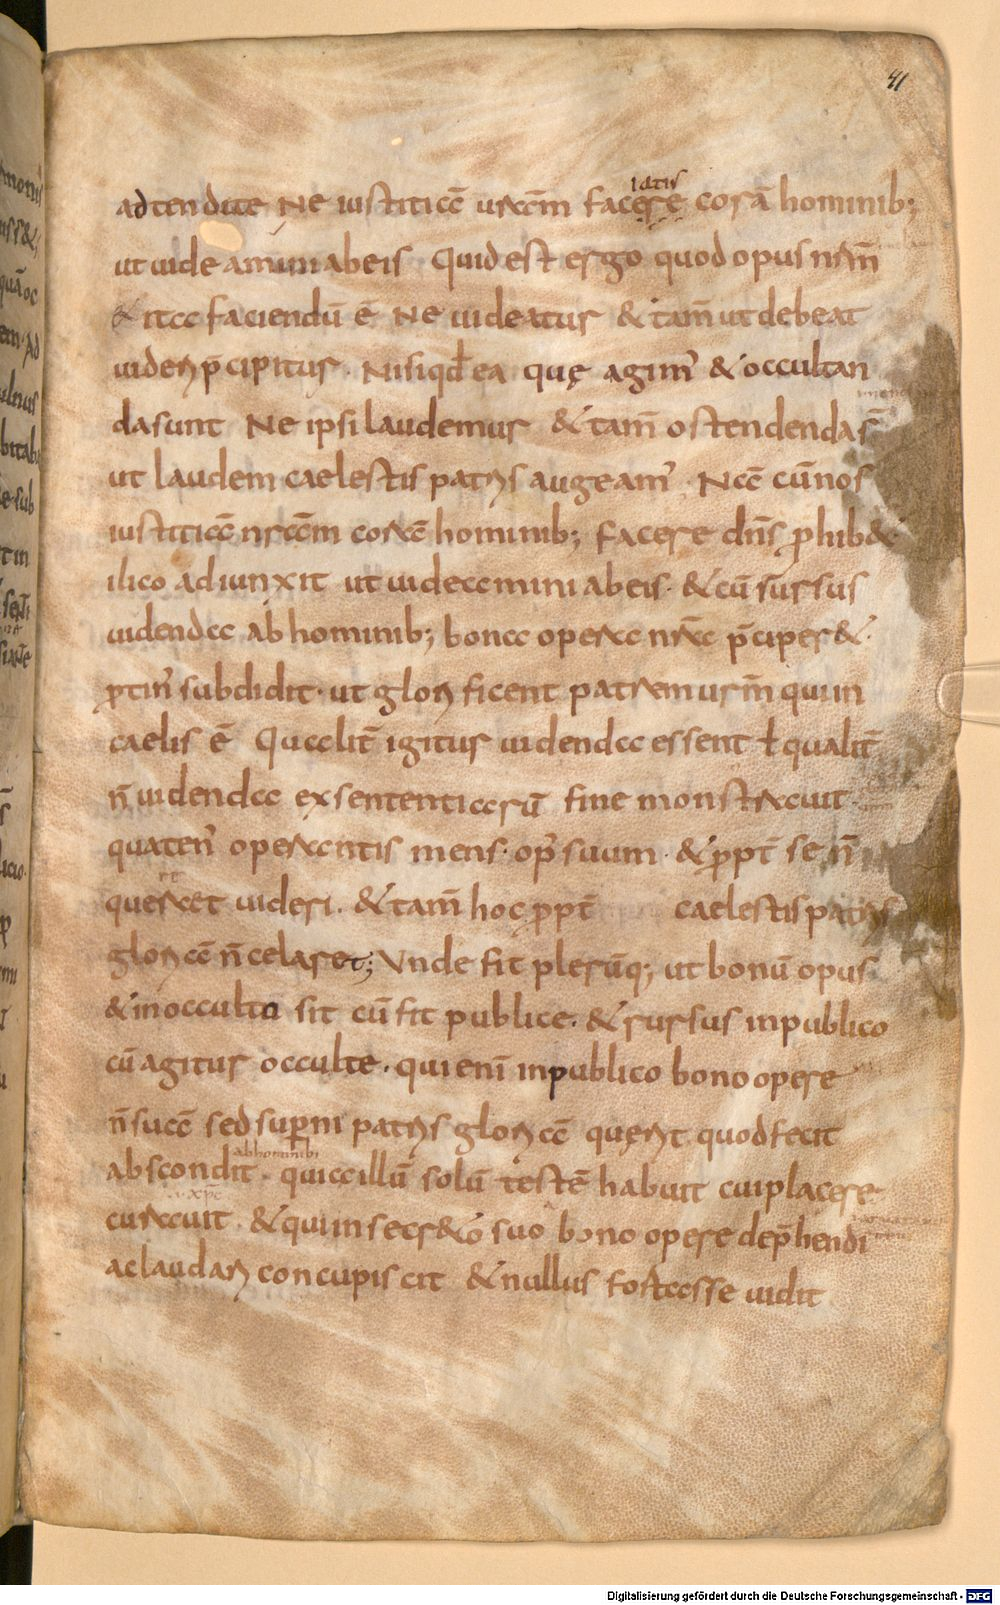 41
iatis
adtendite Ne iustitiā urām facere corā hominib;
ut uideamini abeis Quid est ergo quod opus nrm̄
& ita faciendū ē Ne uideatur & tam̄ ut debeat
uideri p̄cipitur. Nisi qd̄ ea quę agim' & occultan
da sunt Ne ipsi laudemur & tam̄ ostendenda s̄
ut laudem caelestis patris augeam'. Nā cū nos
iustitiā nrām corā hominib; facere dn̄s p̄hib&
ilico adiunxit ut uideamini abeis. & cū rursus
uidenda ab hominib; bona opera nrā p̄ciper&.
p̄tin' subdidit. ut glorificent patrem urm̄ qui in
caelis ē Qualit̄ igitur uidenda essent ł qualit̄
n̄ uidenda ex sententiarū fine monstrauit.
quaten' operantis mens. op' suum. & p̄pt̄ se n̄
quereret uideri. & tam̄ hoc p̄pt̄ caelestis patris
gloriā n̄ celaret; Vnde fit plerūq; ut bonū opus
& in occulto sit cū fit publice. & rursus in publico
cū agitur occulte. qui enī in publico bono opere
n̄ suā sed sup̄ni patris gloriā quęrit quod fecit
ab hominibꝰ
abscondit. quia illū solū testē habuit cui placere
curauit. & qui in secr&o suo bono opere dep̄hendi
ac laudari concupiscit & nullus fortasse uidit
Digitalisierung gefördert durch die Deutsche Forschungsgemeinschaft - DFG